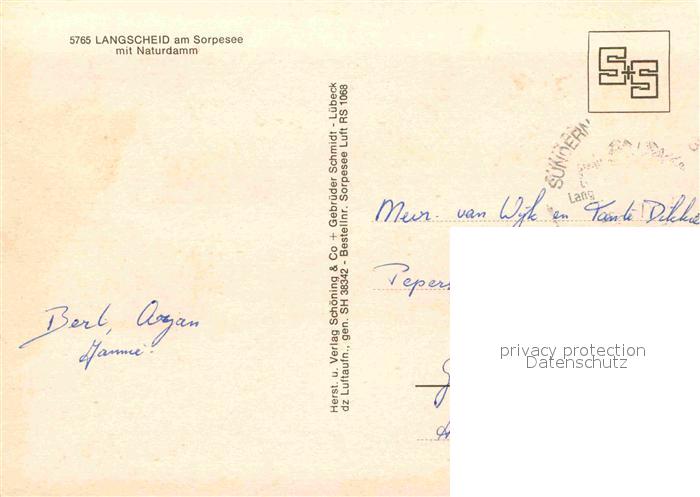 5765 LANGSCHEID am Sorpesee
mit Naturdamm
S+S
SUNDERN
Lang
Herst. u. Verlag Schöning & Co + Gebrüder Schmidt - Lübeck
dz Luftaufn., gen. SH 38342 - Bestellnr. Sorpesee Luft RS 1068
Mevr. van Wijk en Tante Dikkie
Bert, Aryan
Jannie.
privacy protection
Datenschutz